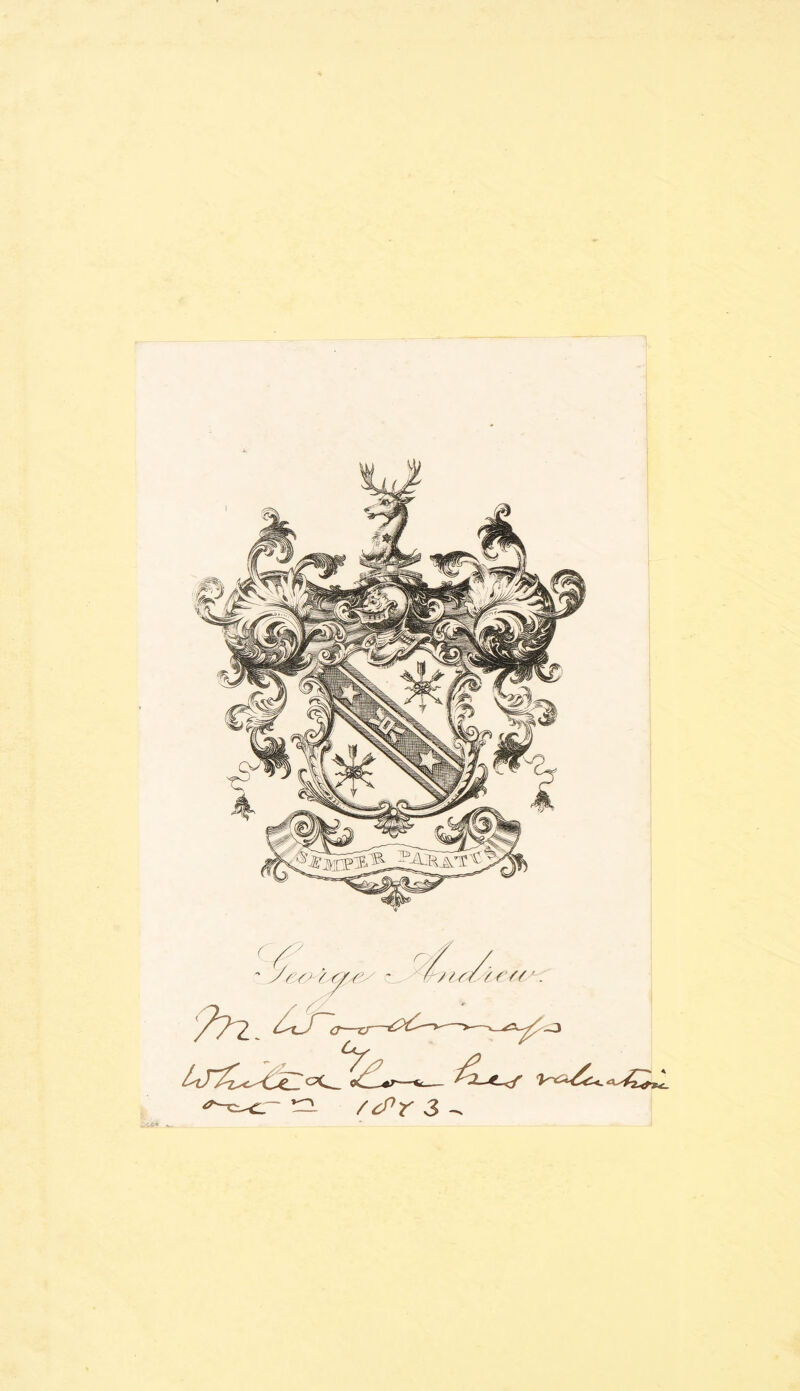 SEMPER PARATUS
George Andrew.
M. Woodmass
by
White & his valuation
1873 -